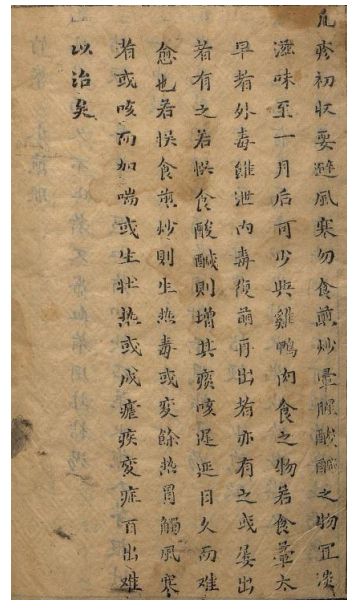 凡疹初収要避風寒勿食煎炒葷腥酸醎之物宜淡
滋味至一月后可少與雞鴨肉食之物若食葷太
早者外毒雖泄内毒復萌再出者亦有之或屢出
者有之若悮食酸醎則增其痰咳遲延日久而难
愈也若悮食煎炒則生热毒或変餘热胃觸風寒
者或咳而加喘或生壮热或成瘧疾変症百出难
以治矣